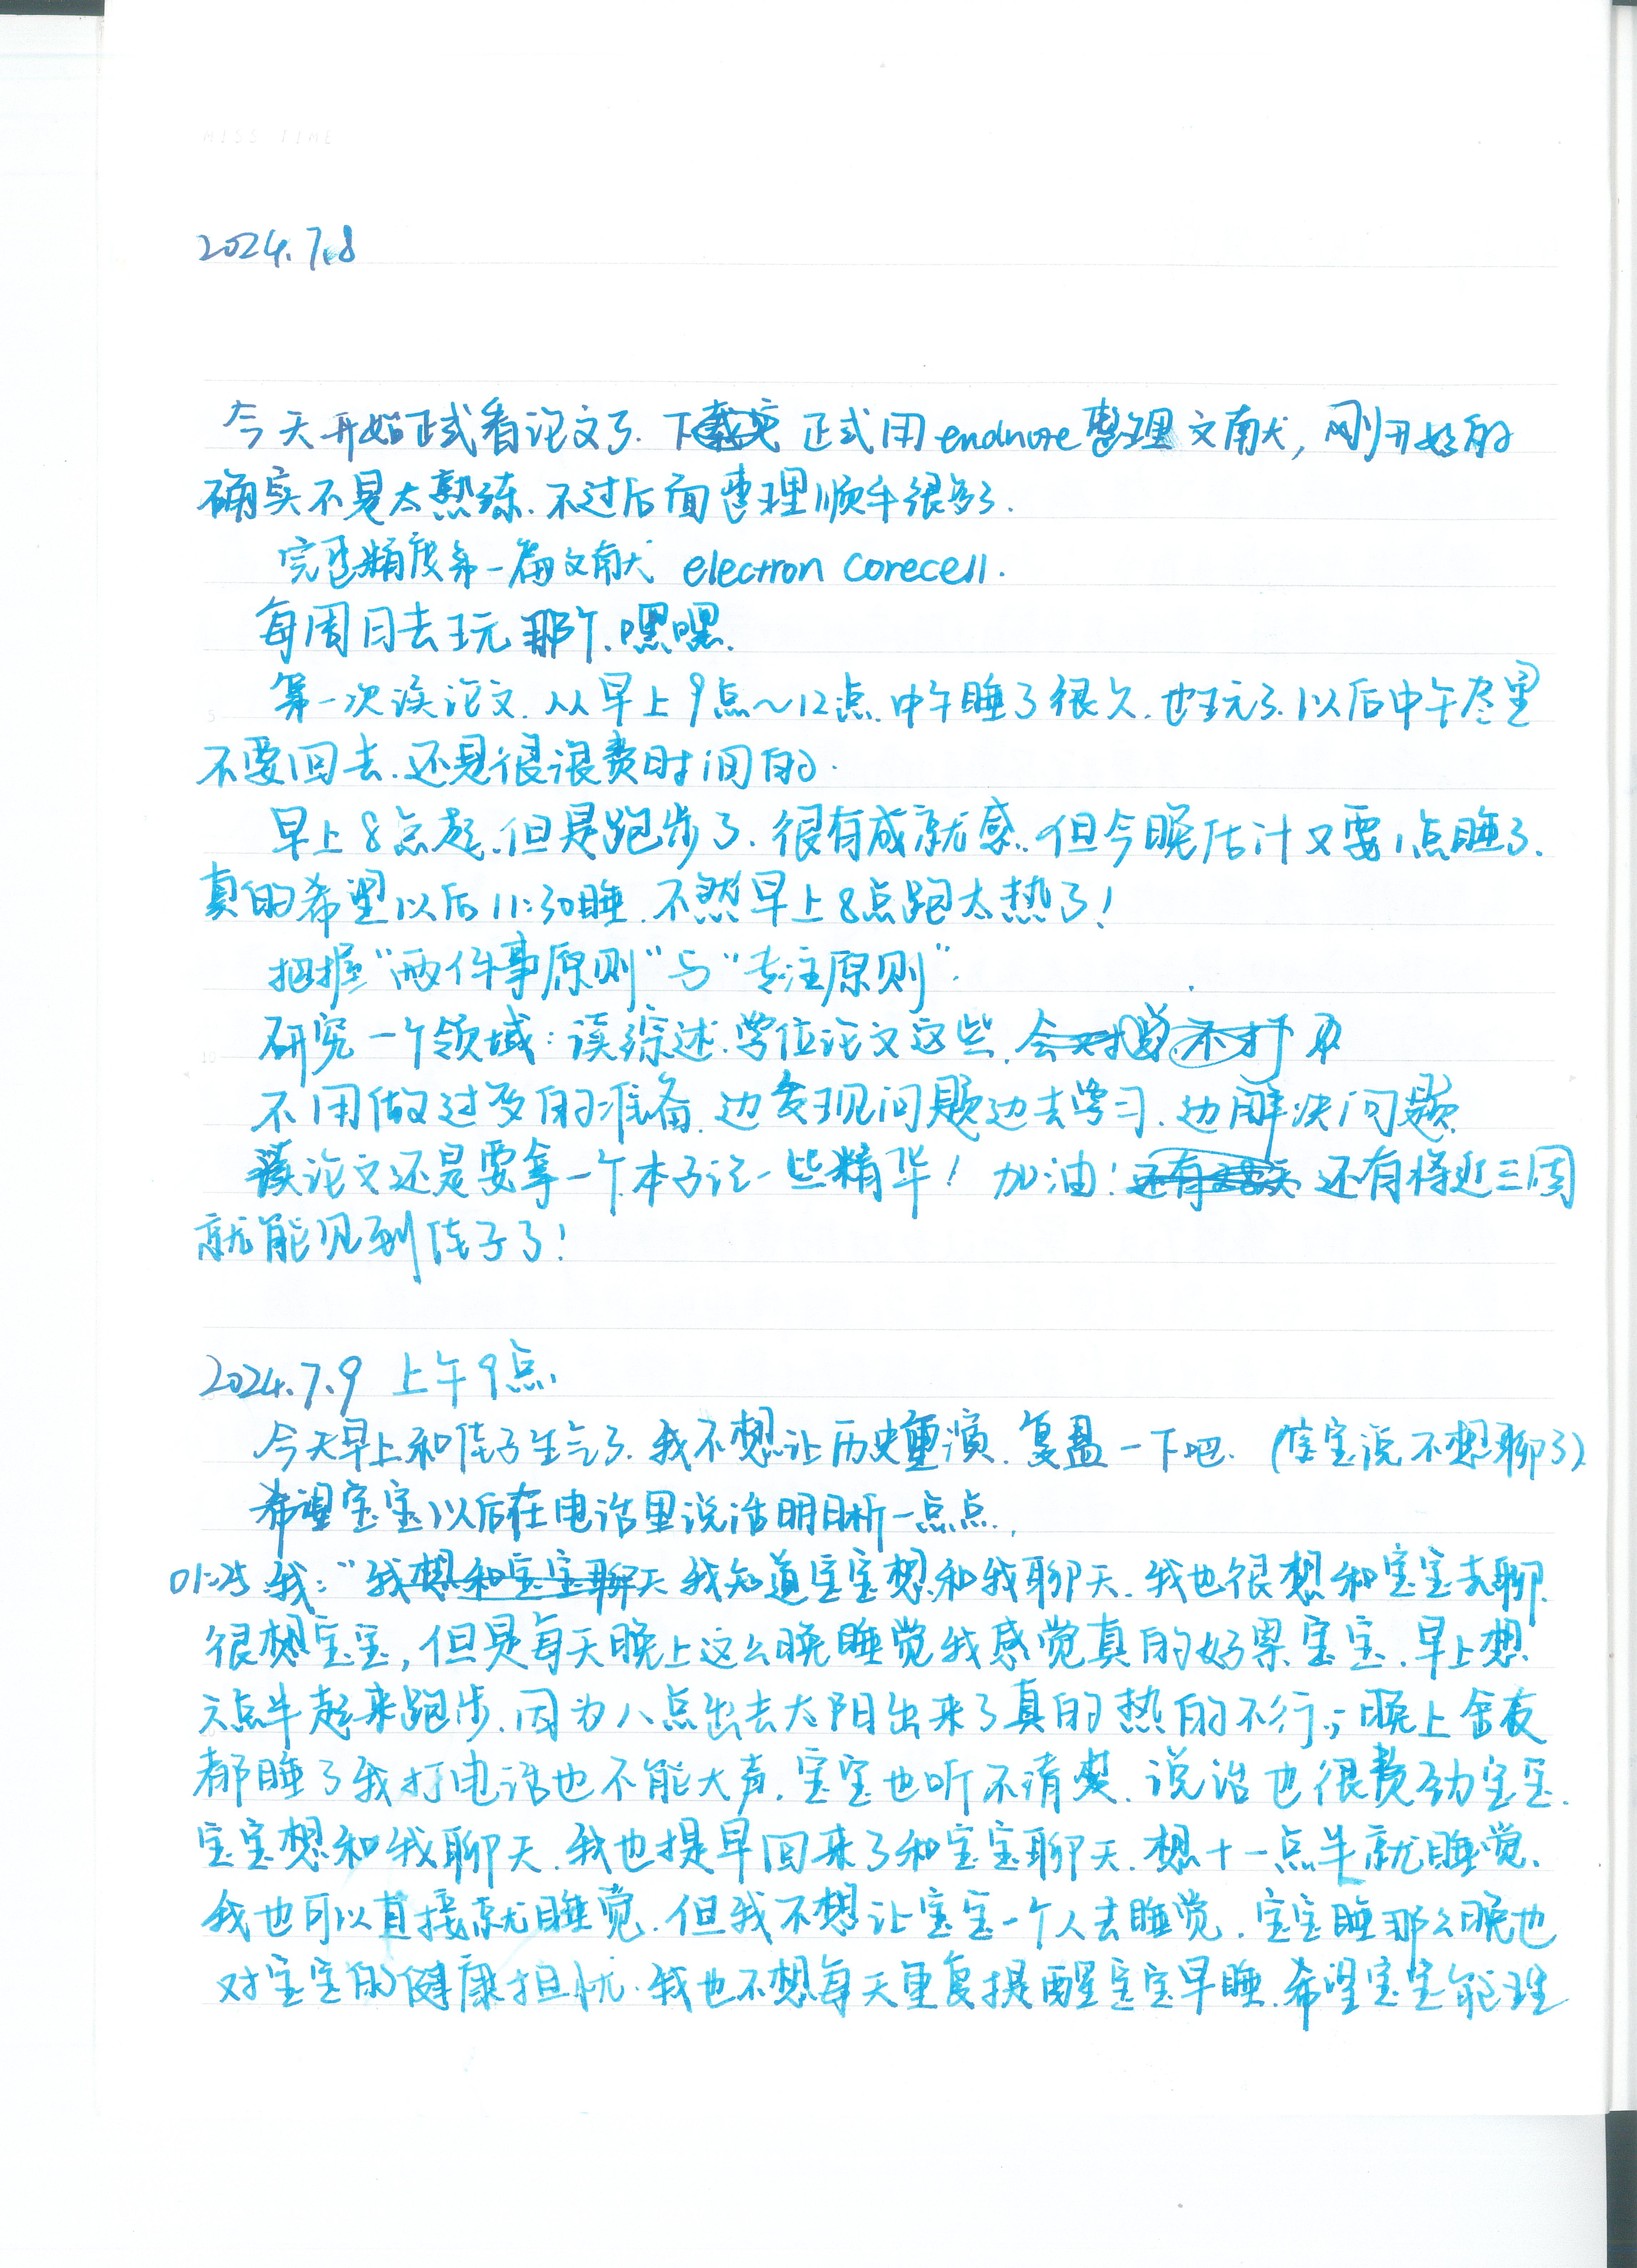 MISS TIME
2024.7.8
今天开始正式看论文了.下载完 正式用endnote整理文献,刚开始的
确实不是太熟练.不过后面整理顺手很多了.
完整精度第一篇文献 electron corecell.
每周日去玩那个.嘿嘿.
第一次读论文.从早上9点~12点.中午睡了很久.也玩了.以后中午尽量
不要回去.还是很浪费时间的.
早上8点起.但是跑步了.很有成就感.但今晚估计又要1点睡了.
真的希望以后11:30睡.不然早上8点跑太热了!
把握"两件事原则"与"专注原则".
研究一个领域:读综述.学位论文这些.
不用做过多的准备.边发现问题边去学习.边解决问题.
读论文还是要拿一个本子记一些精华! 加油! 还有将近三周
就能见到倩子了!
2024.7.9 上午9点.
今天早上和倩子生气了.我不想让历史重演.复盘一下吧.(宝宝说不想聊了)
希望宝宝以后在电话里说话明晰一点点.
01:25 我:"我想和宝宝聊天 我知道宝宝想和我聊天.我也很想和宝宝去聊.
很想宝宝,但是每天晚上这么晚睡觉我感觉真的好累宝宝.早上想
六点半起来跑步.因为八点出去太阳出来了真的热的不行;晚上舍友
都睡了我打电话也不能大声.宝宝也听不清楚.说话也很费劲宝宝.
宝宝想和我聊天.我也提早回来了和宝宝聊天.想十一点半就睡觉.
我也可以直接就睡觉.但我不想让宝宝一个人去睡觉.宝宝睡那么晚也
对宝宝的健康担忧.我也不想每天重复提醒宝宝早睡.希望宝宝能理